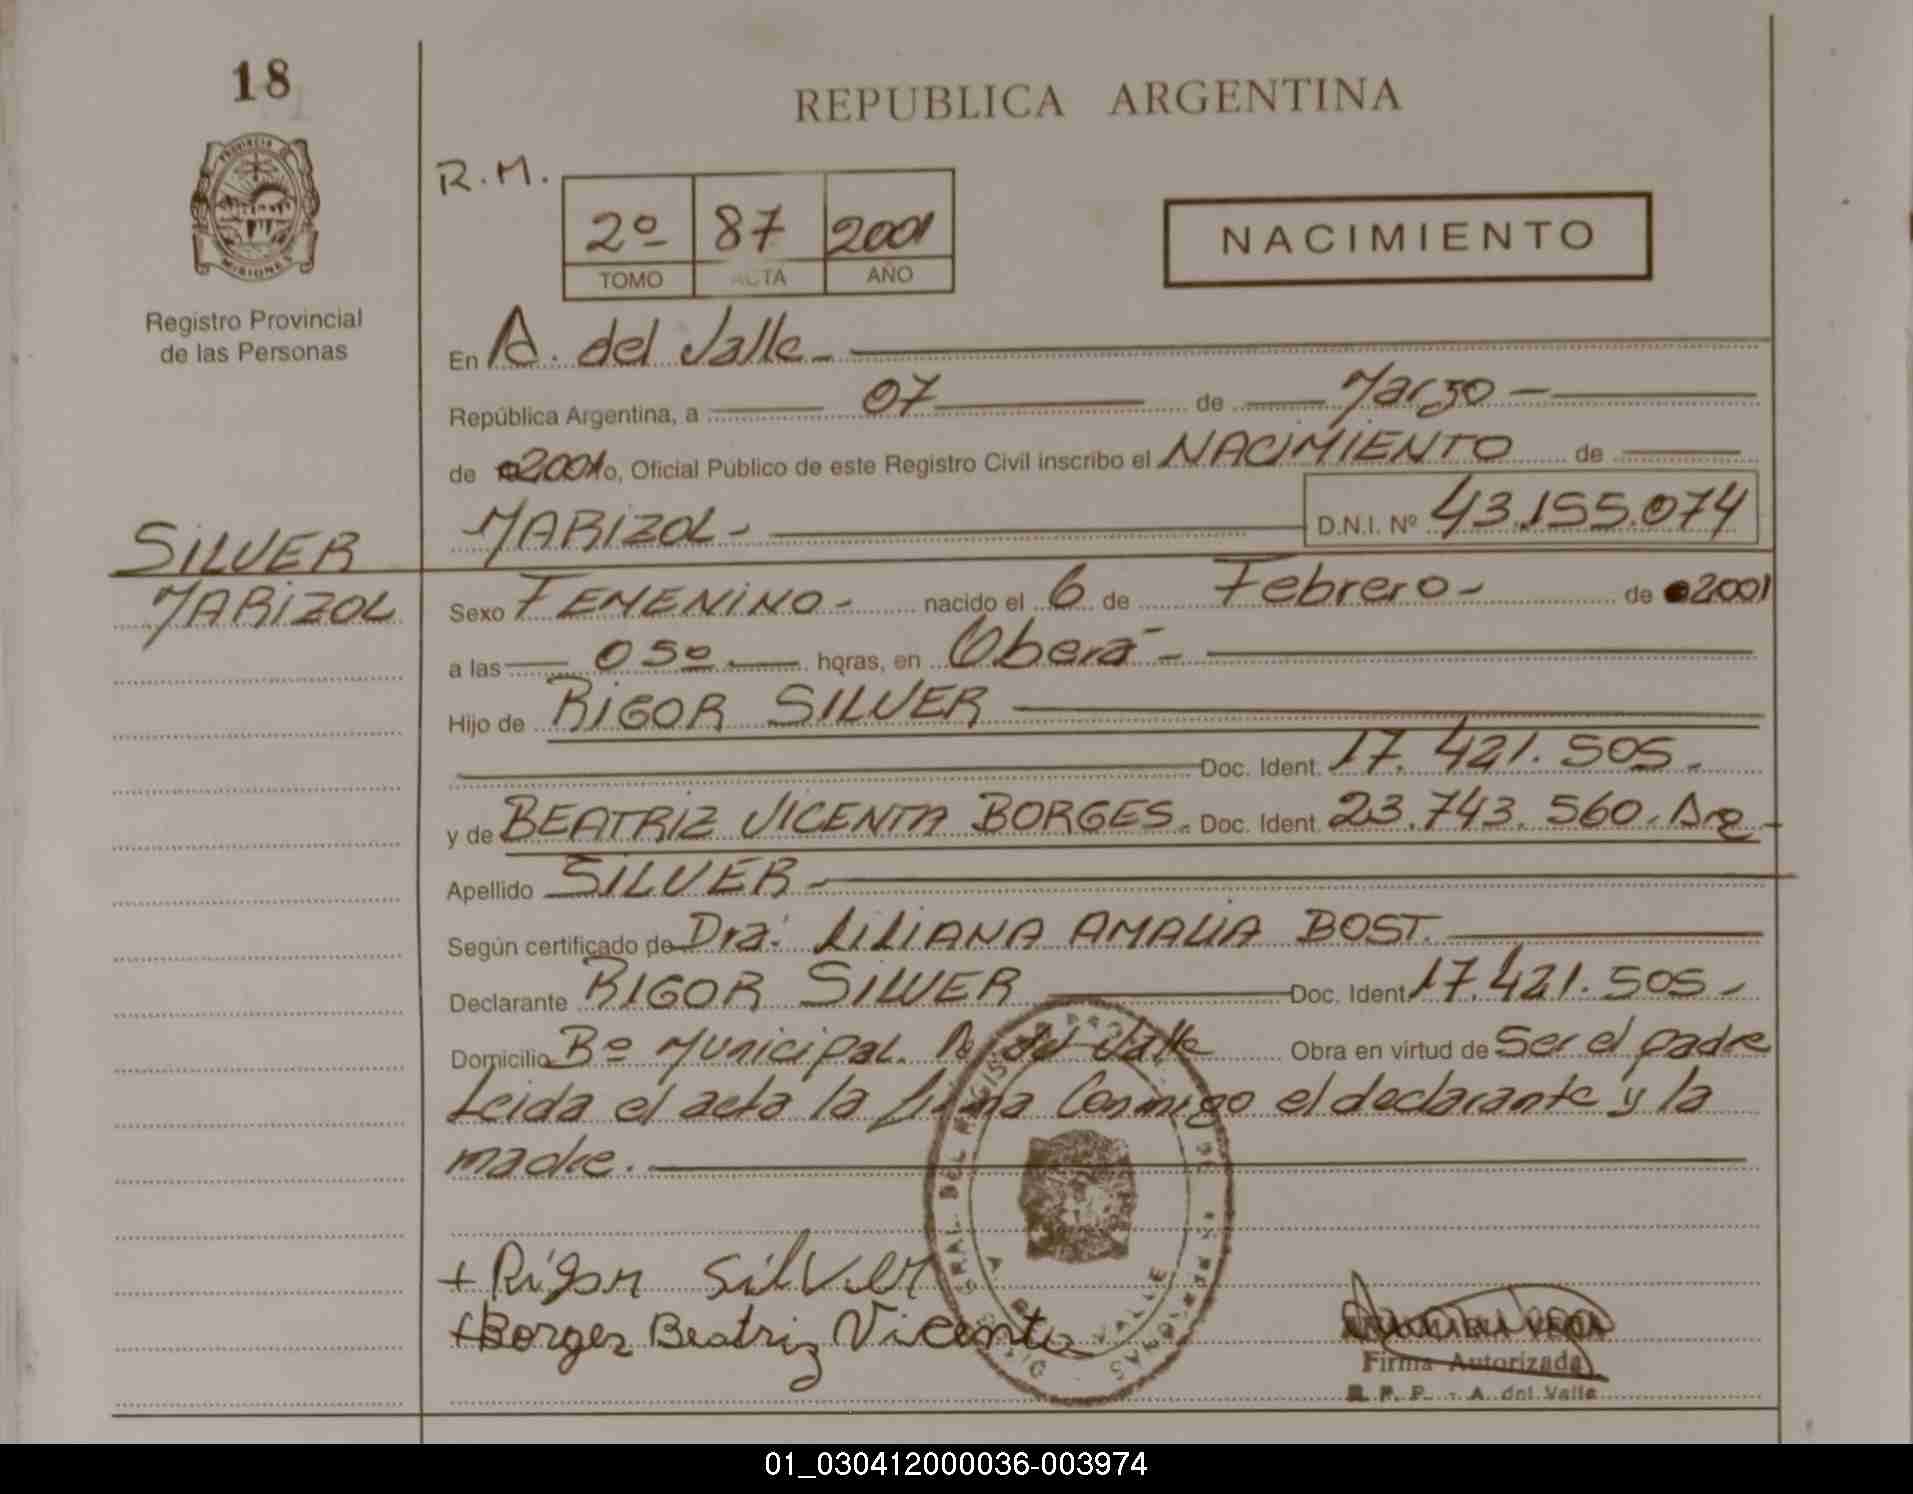 18
REPUBLICA ARGENTINA
PROVINCIA DE
MISIONES
Registro Provincial
de las Personas
R.M.
2º 87 2001
TOMO ACTA AÑO
NACIMIENTO
En A. del Valle -
República Argentina, a 07 de Marzo -
de 2001 o, Oficial Público de este Registro Civil inscribo el NACIMIENTO de
MARIZOL - D.N.I. Nº 43.155.074
SILVER
MARIZOL
Sexo FEMENINO - nacido el 6 de Febrero - de 2001
a las 05º horas, en Oberá -
Hijo de RIGOR SILVER
Doc. Ident. 17.421.505 -
y de BEATRIZ VICENTA BORGES. Doc. Ident. 23.743.560. Arg -
Apellido SILVER -
Según certificado de Dra. LILIANA AMALIA BOST.
Declarante RIGOR SILVER Doc. Ident. 17.421.505 -
Domicilio Bº Municipal. A. del Valle Obra en virtud de Ser el padre
Leida el acta la firma Conmigo el declarante y la
madre.
+ Rigor Silver
+ Borges Beatriz Vicenta
Firma Autorizada
R. P. P. - A. del Valle
01_030412000036-003974